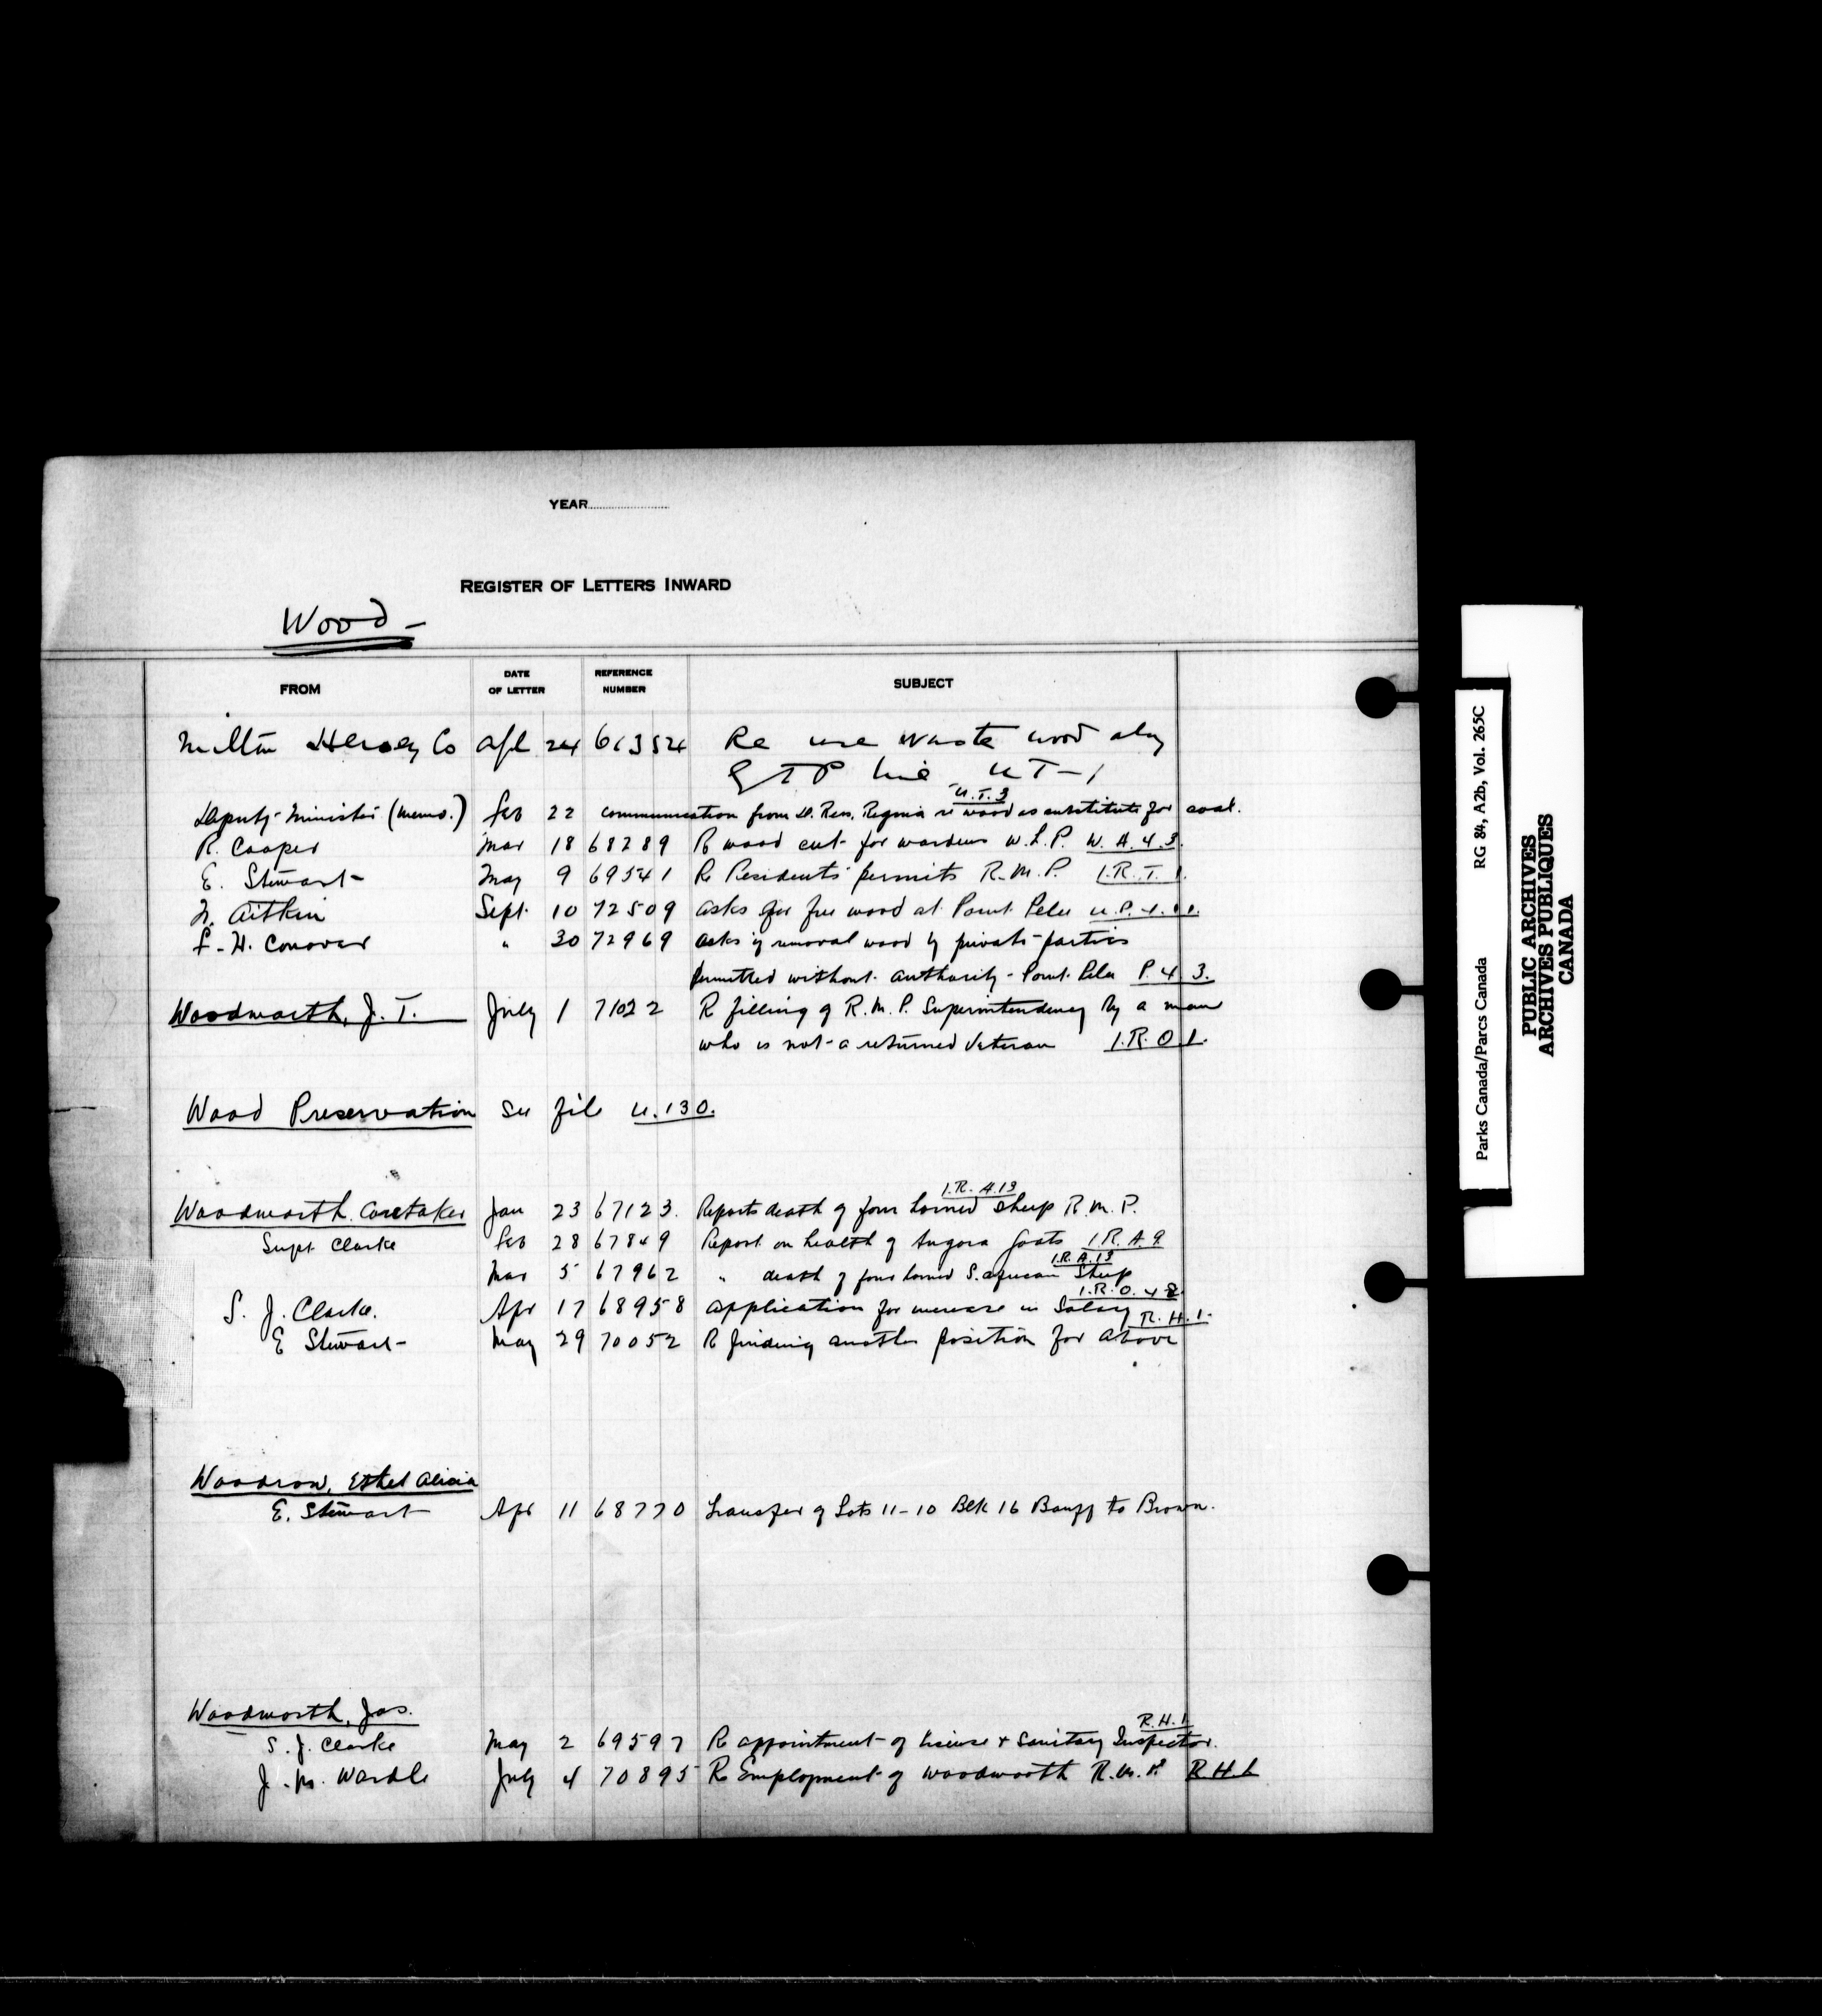 YEAR
REGISTER OF LETTERS INWARD
Wood -
FROM DATE OF LETTER REFERENCE NUMBER SUBJECT
Milton Hersey Co Apl 24 61354 Re use waste wood along
GTP line UT-1
U.T.3
Deputy Minister (memo.) Feb 22 communication from Rem. Regina re wood as substitute for coal.
R. Cooper Mar 18 68289 R wood cut for wardens W.L.P. W.A.4.3.
E. Stewart May 9 69541 Re Residents' permits R.M.P. I.R.T.1.
Aitkin Sept. 10 72509 asks for free wood at Point Pelee
F. H. Conover " 30 72969 asks if removal wood by private parties
permitted without authority - Point Pelee P.4.3.
Woodworth, J. T. July 1 71022 R filling of R.M.P. Superintendency by a man
who is not a returned veteran I.R.O.1.
Wood Preservation see file U.130.
I.R.A.13
Woodworth Caretaker Jan 23 67123. Reports death of four horned sheep R.M.P.
Supt. Clarke Feb 28 67849 Report on health of Angora Goats I.R.A.9
I.R.A.13
Mar 5 67962 " death of four horned S. African Sheep
I.R.O.42
S. J. Clarke. Apr 17 68958 application for increase in Salary R.H.1.
E Stewart May 29 70052 R finding another position for above
Woodrow, Ethel Alicia
E. Stewart Apr 11 68770 Transfer of Lots 11-10 Blk 16 Banff to Brown.
Woodworth, Jas.
R.H.1
S. J. Clarke May 2 69597 R appointment of License & Sanitary Inspector.
J. M. Wardle July 4 70895 R Employment of Woodworth R.M.P. R.H.1
Parks Canada/Parcs Canada RG 84, A2b, Vol. 265C
PUBLIC ARCHIVES
ARCHIVES PUBLIQUES
CANADA